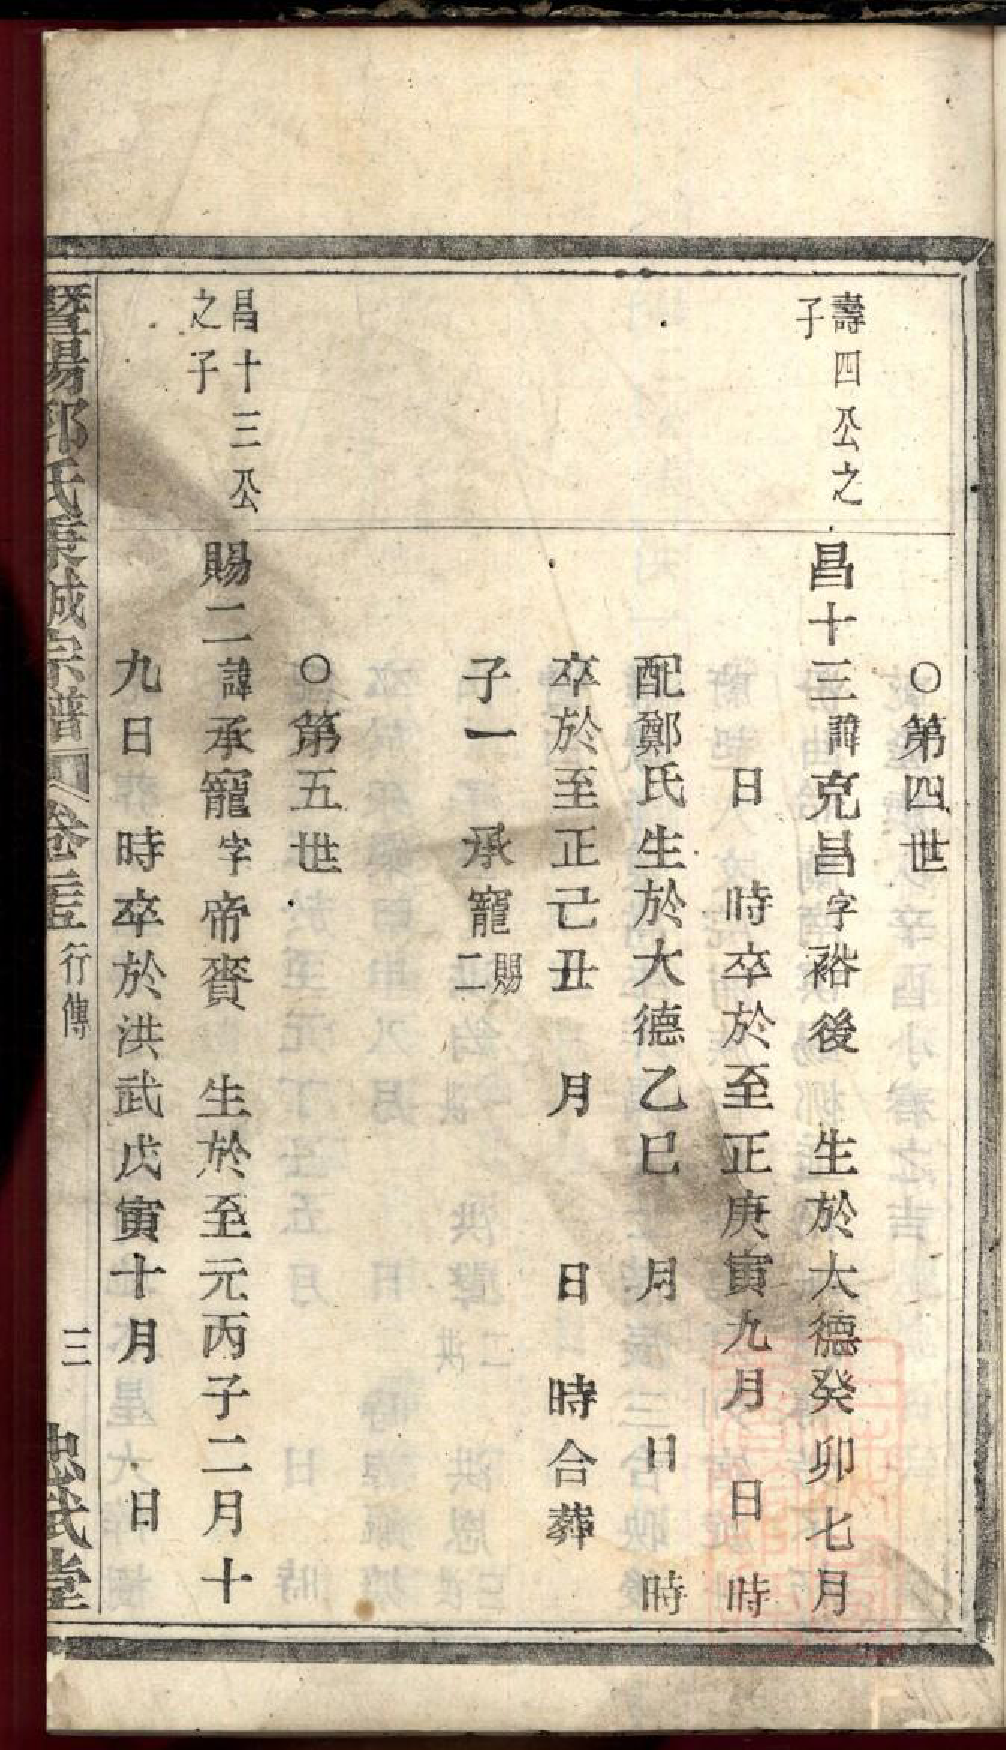 ○第四世
壽四公之
子
昌十三諱克昌字裕後　生於大德癸卯七月
日　時卒於至正庚寅九月　日　時
配鄭氏生於大德乙巳　月　日　時
卒於至正己丑　月　日　時合葬
子一　承寵賜二
○第五世
昌十三公
之子
賜二諱承寵字帝賚　生於至元丙子二月十
九日　時卒於洪武戊寅十月　日
暨陽郭氏宗譜卷 行傳 三 忠武堂